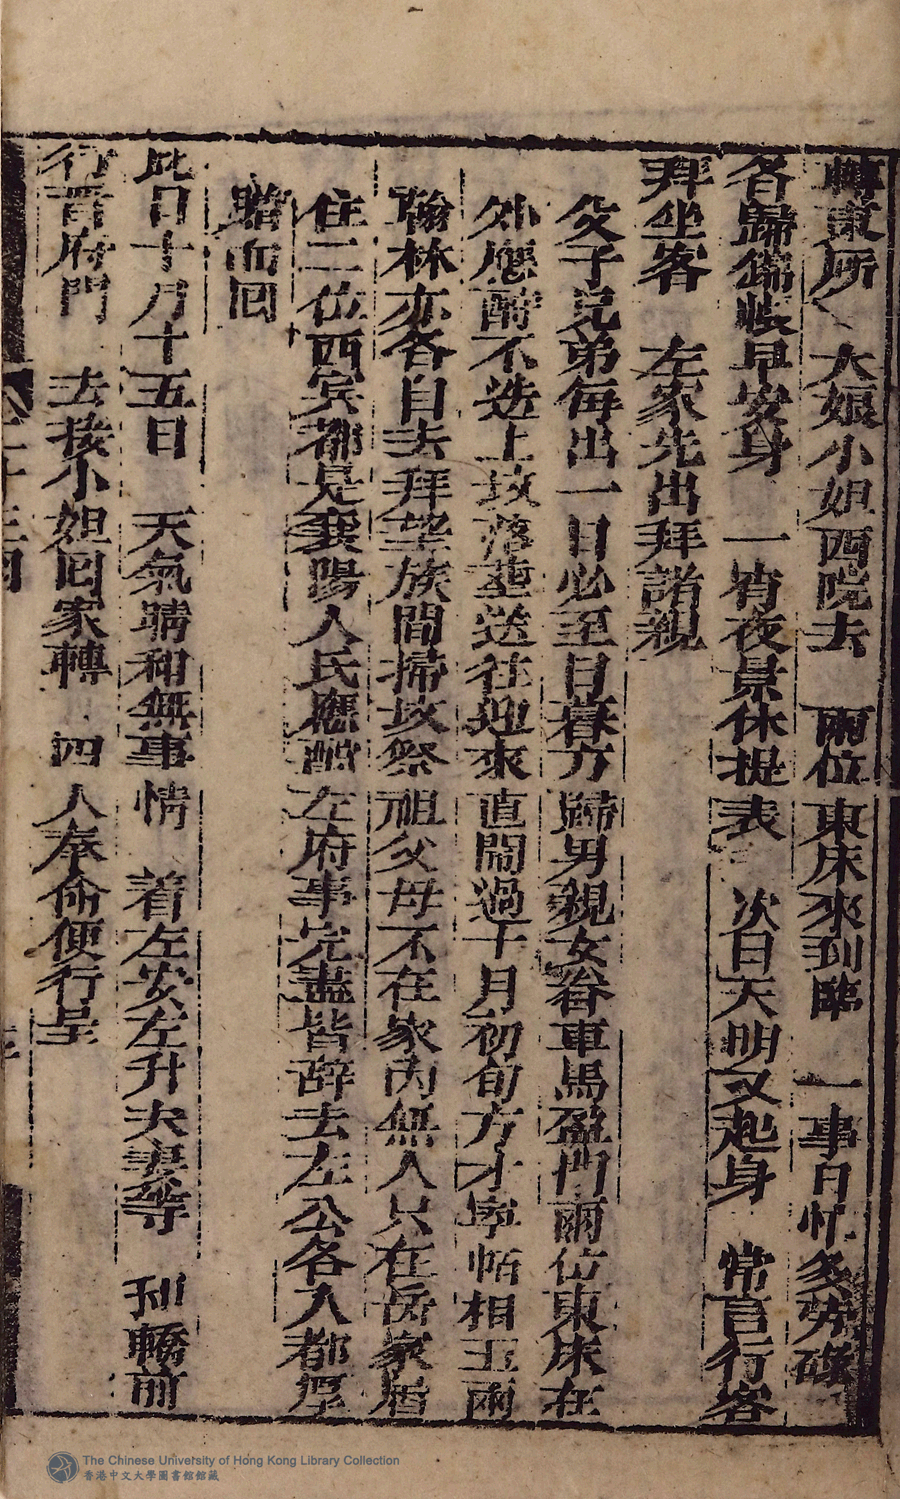 轉東所〻 大娘小姐西院去 兩位東床來到臨 一事日忙多勞碌
各歸錦帳早安身 一宵夜景休提表 次日天明又起身 常言行客
拜坐客 左家先出拜諸親
父子兄弟每出一日必至日暮方歸男親女眷車馬盈門兩位東床在
外應酧不迭上坟落塟送往迎來直閙過十月初旬方才寜帖相王兩
翰林亦各自去拜望族間掃坟祭祖父母不在家內無人只在岳家居
住二位西宾都是襄陽人氏應酧左府事完盡皆辞去左公各人都厚
贈而囘
此日十月十五日 天氣晴和無事情 着左安左升夫妻等 到轎前
行晋府門 去接小姐囘家轉 四人奉命便行呈
The Chinese University of Hong Kong Library Collection
香港中文大學圖書館館藏